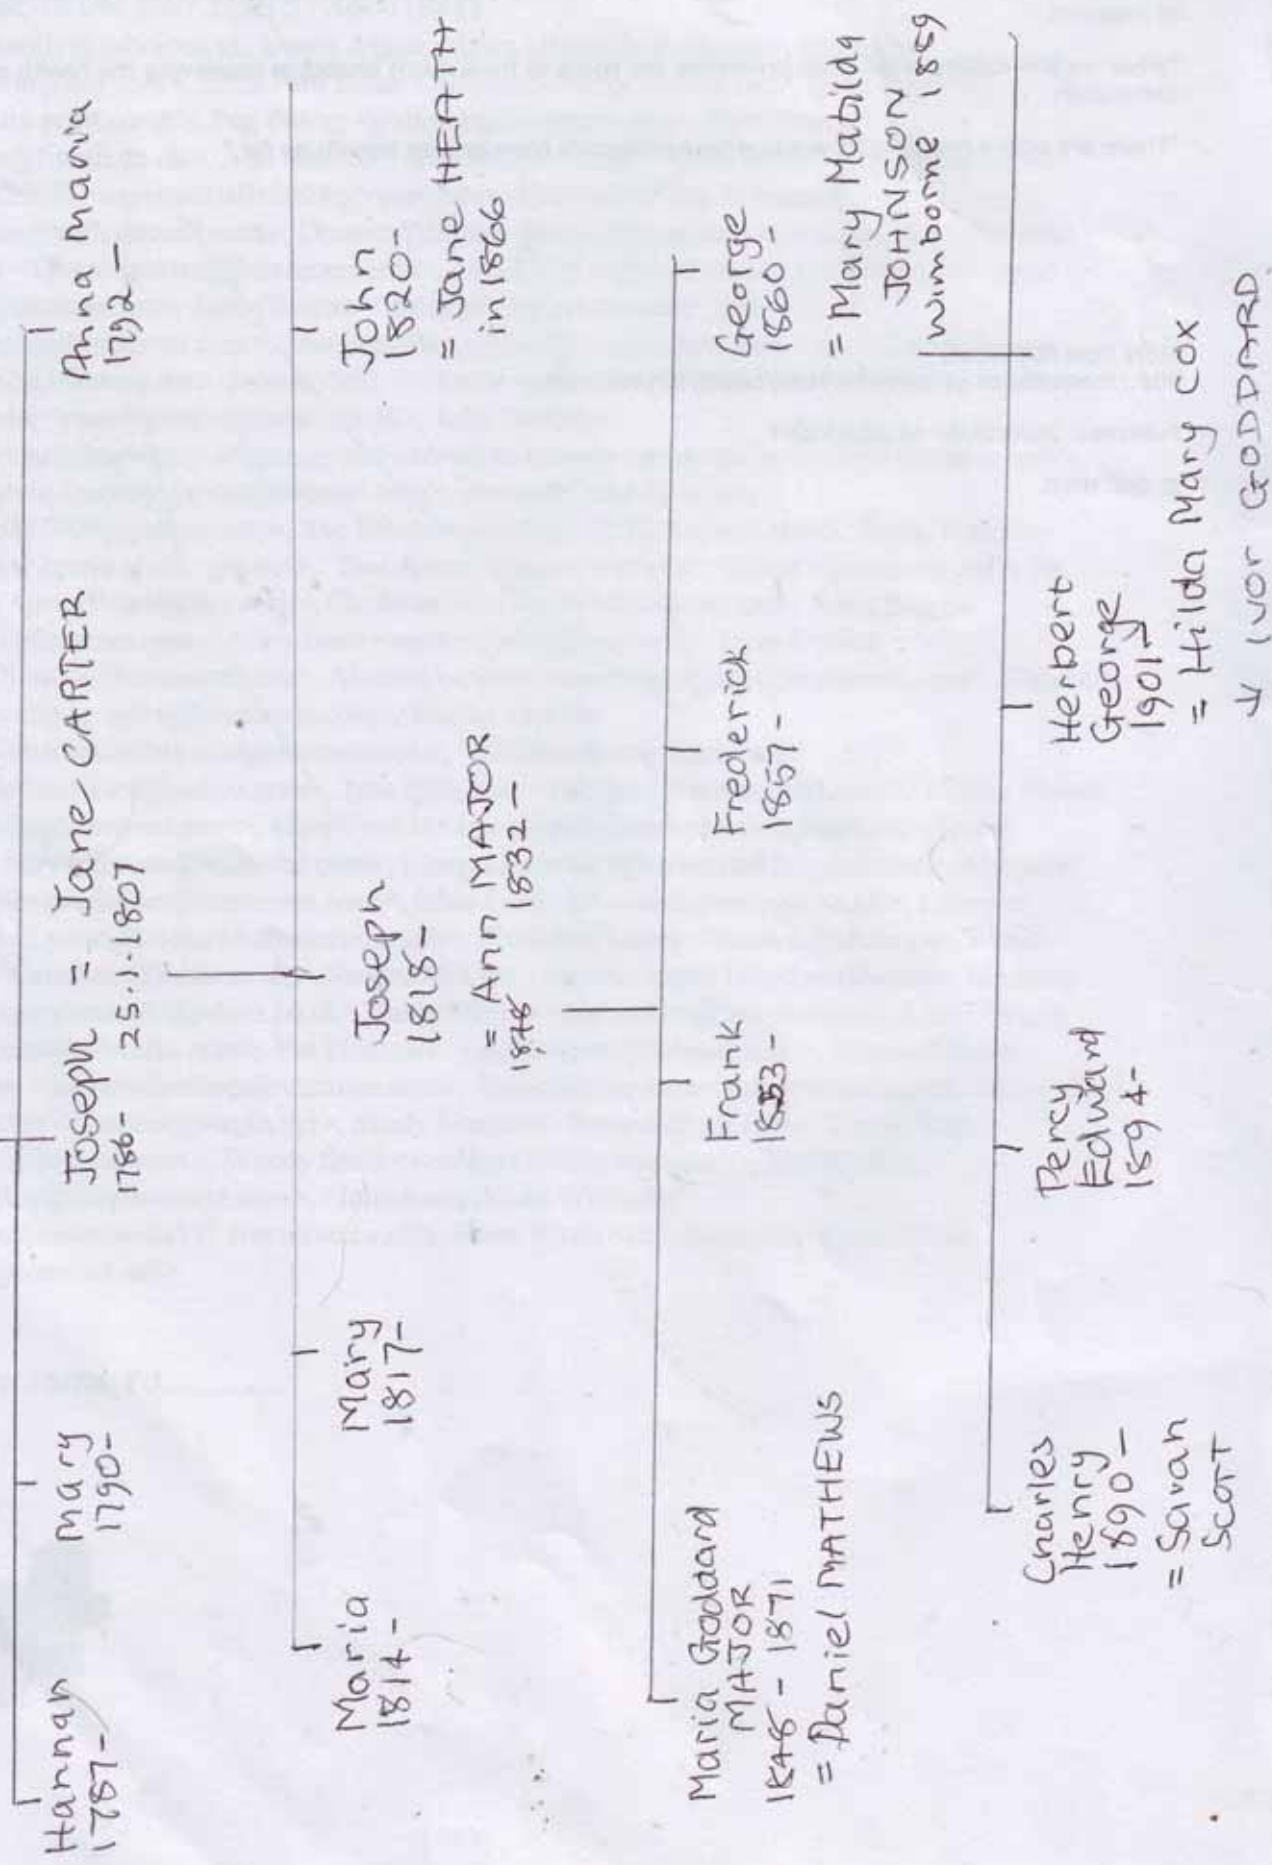 Hannah
1787-
Mary
1790-
Joseph = Jane CARTER
1786- 25.. .1807
Ana Maria
1792-
Maria
1814-
Mary
1817-
Joseph
1818-
= Ann MAJOR
1832-
John
1820-
= Jane HEATH
in 1866
Maria Goddard
MAJOR
1848 - 1871
= Daniel MATHEWS
Frank
1853-
Frederick
1857-
George
1860-
= Mary Matilda
JOHNSON
Wimborne 1889
Charles
Henry
1890-
= Sarah
Scott
Percy
Edward
1894-
Herbert
George
1901-
= Hilda Mary Cox
↓ IVOR GODDARD